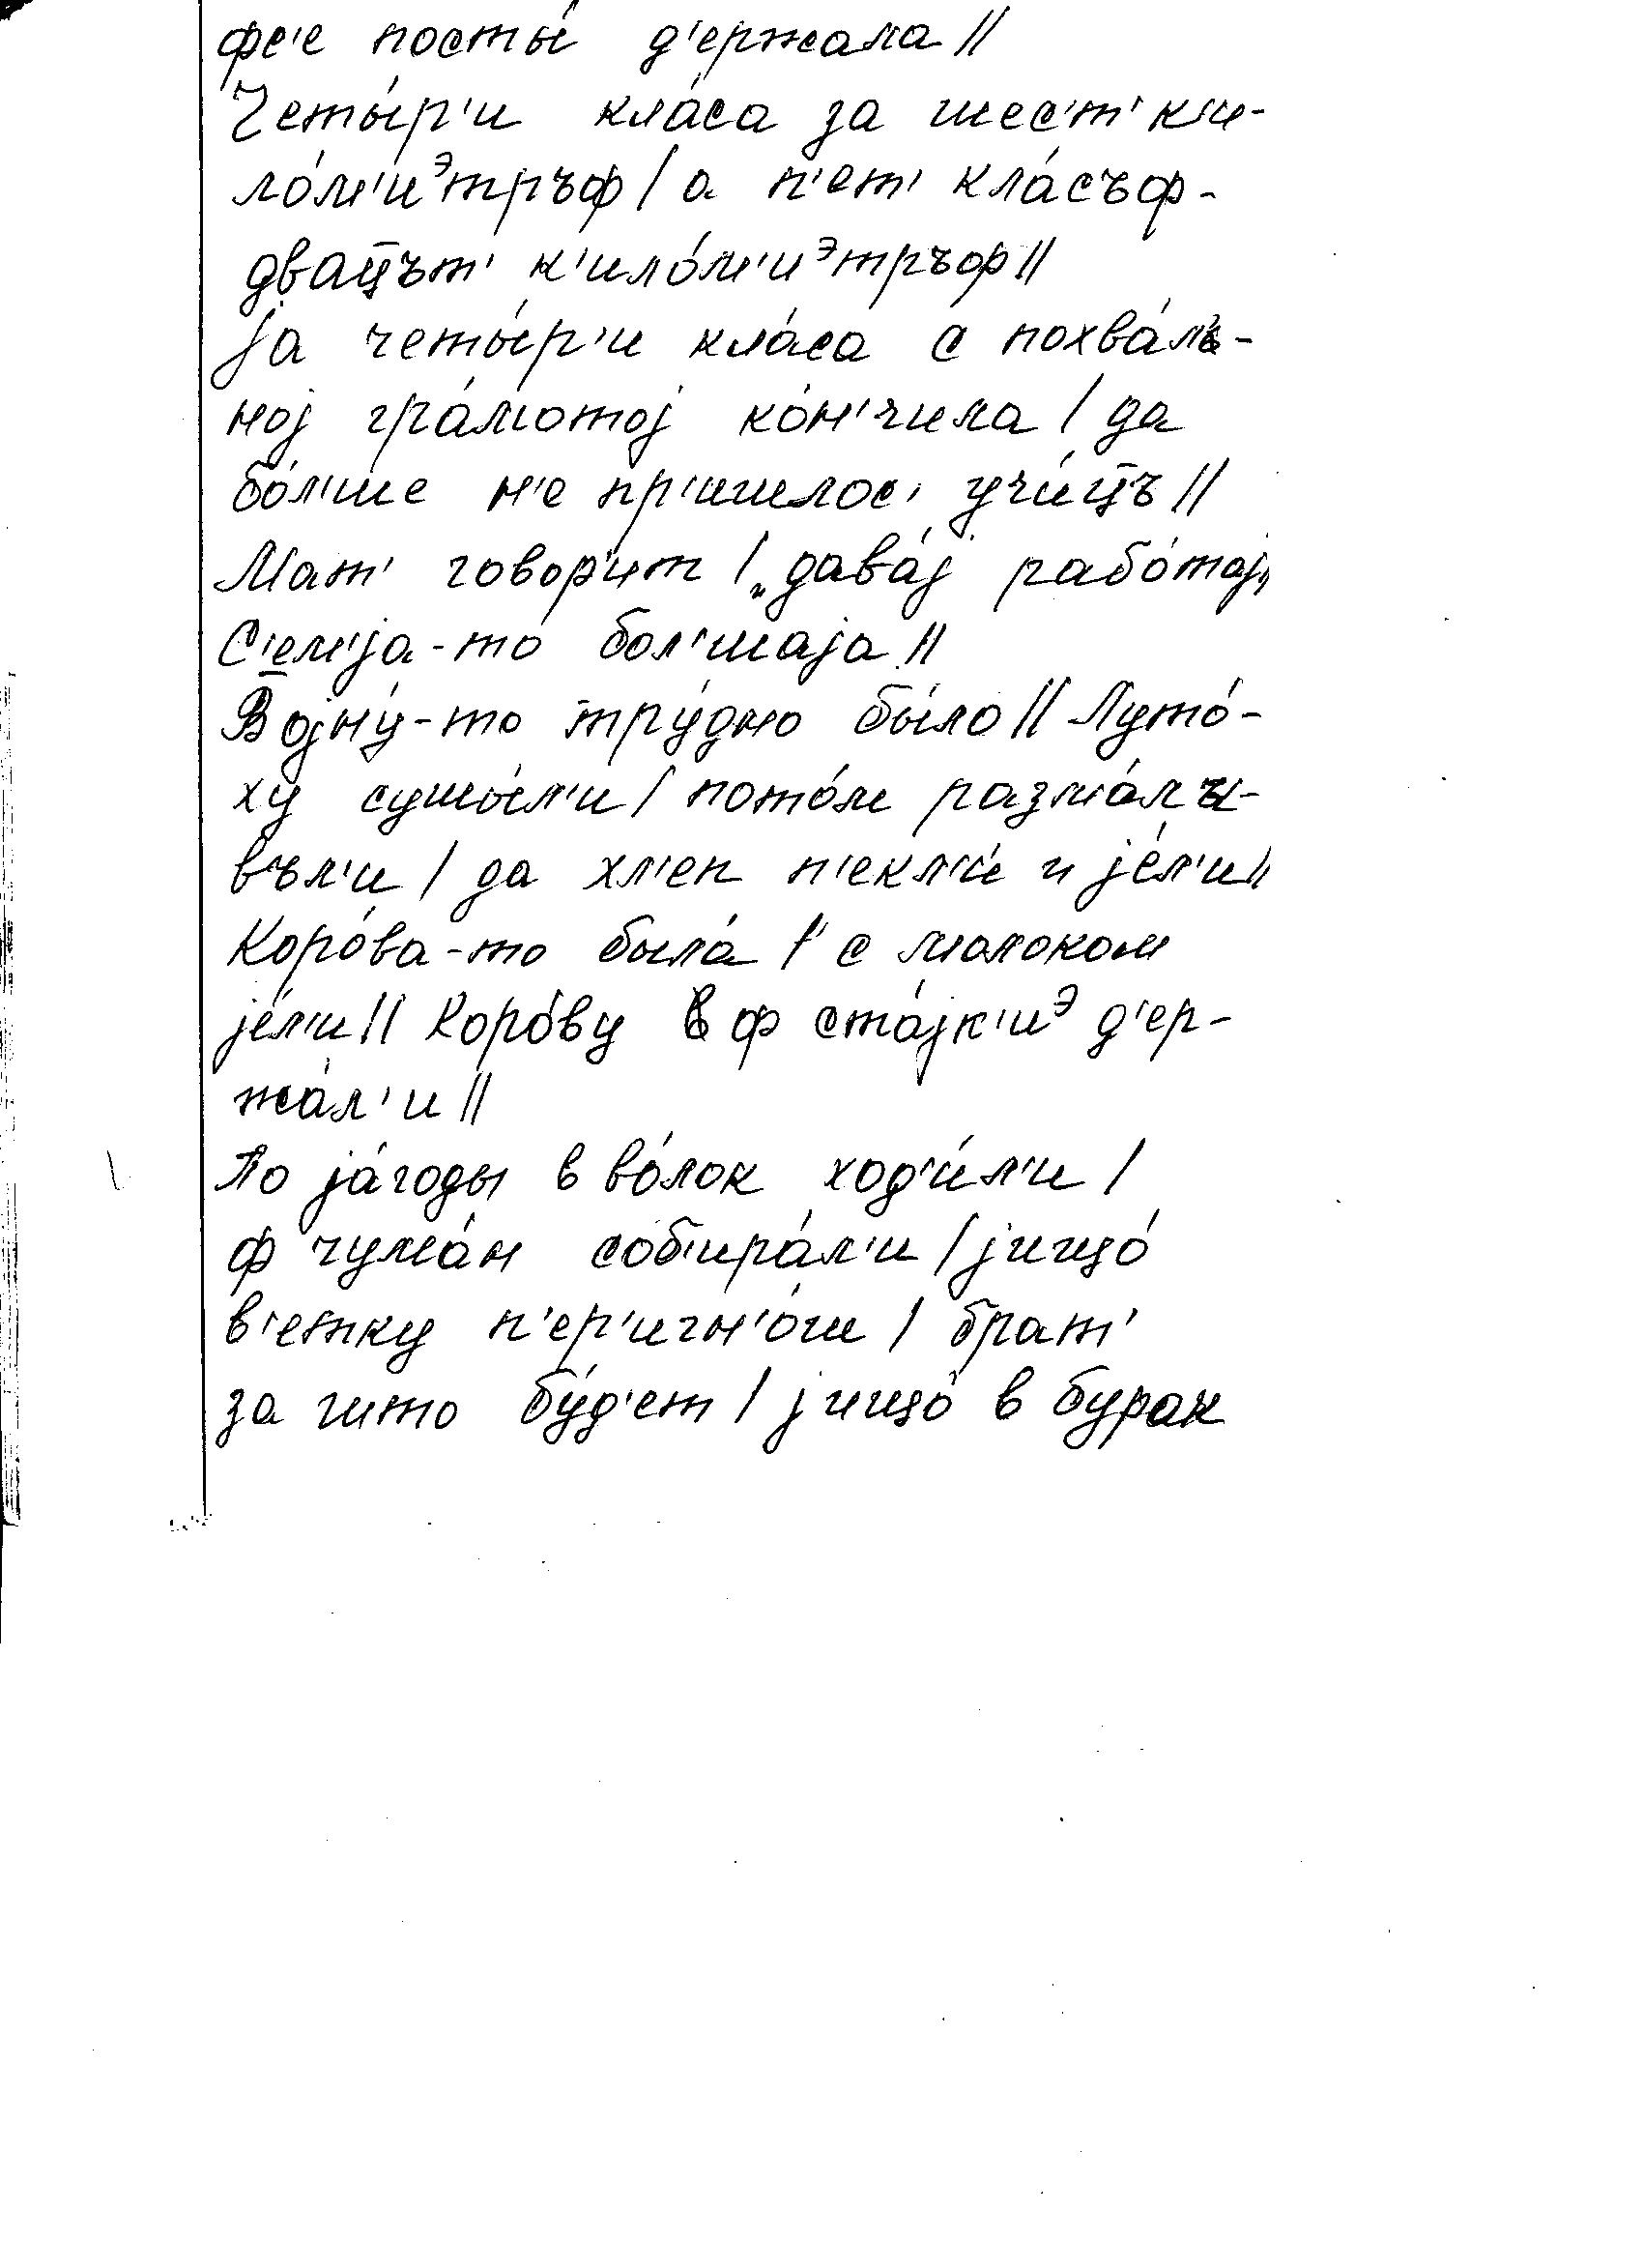 фс'е посты́ д'ержала //
Четы́р'и кла́са за шес'т' к'и-
ло́м'иэтръф / а п'ет' кла́съф -
двац̅ът' к'ило́м'иэтръф //
ја четы́р'и кла́са с похва́л'-
ној гра́мотој ко́н'чила / да
бо́л'ше н'е пр'ишлос' учи́ц̅ъ //
Мат' говор'ит / „дава́ј рабо́тај"
С'ем'ја-то бол'шаја //
Војну́-то тру́дно бы́ло // Луто́-
ху сушы́л'и / пото́м разма́лы-
въл'и / да хл'еп п'екл'и́ и је́л'и //
Коро́ва-то была́ / с молоком
је́л'и // Коро́ву ф ста́јк'иэ д'ер-
жа́л'и //
По ја́годы в во́лок ход'и́л'и /
ф чума́н соб'ира́л'и / јищо́
в'етку п'ер'игн'о́ш / брат'
за што бу́д'ет / јищо́ в бурак